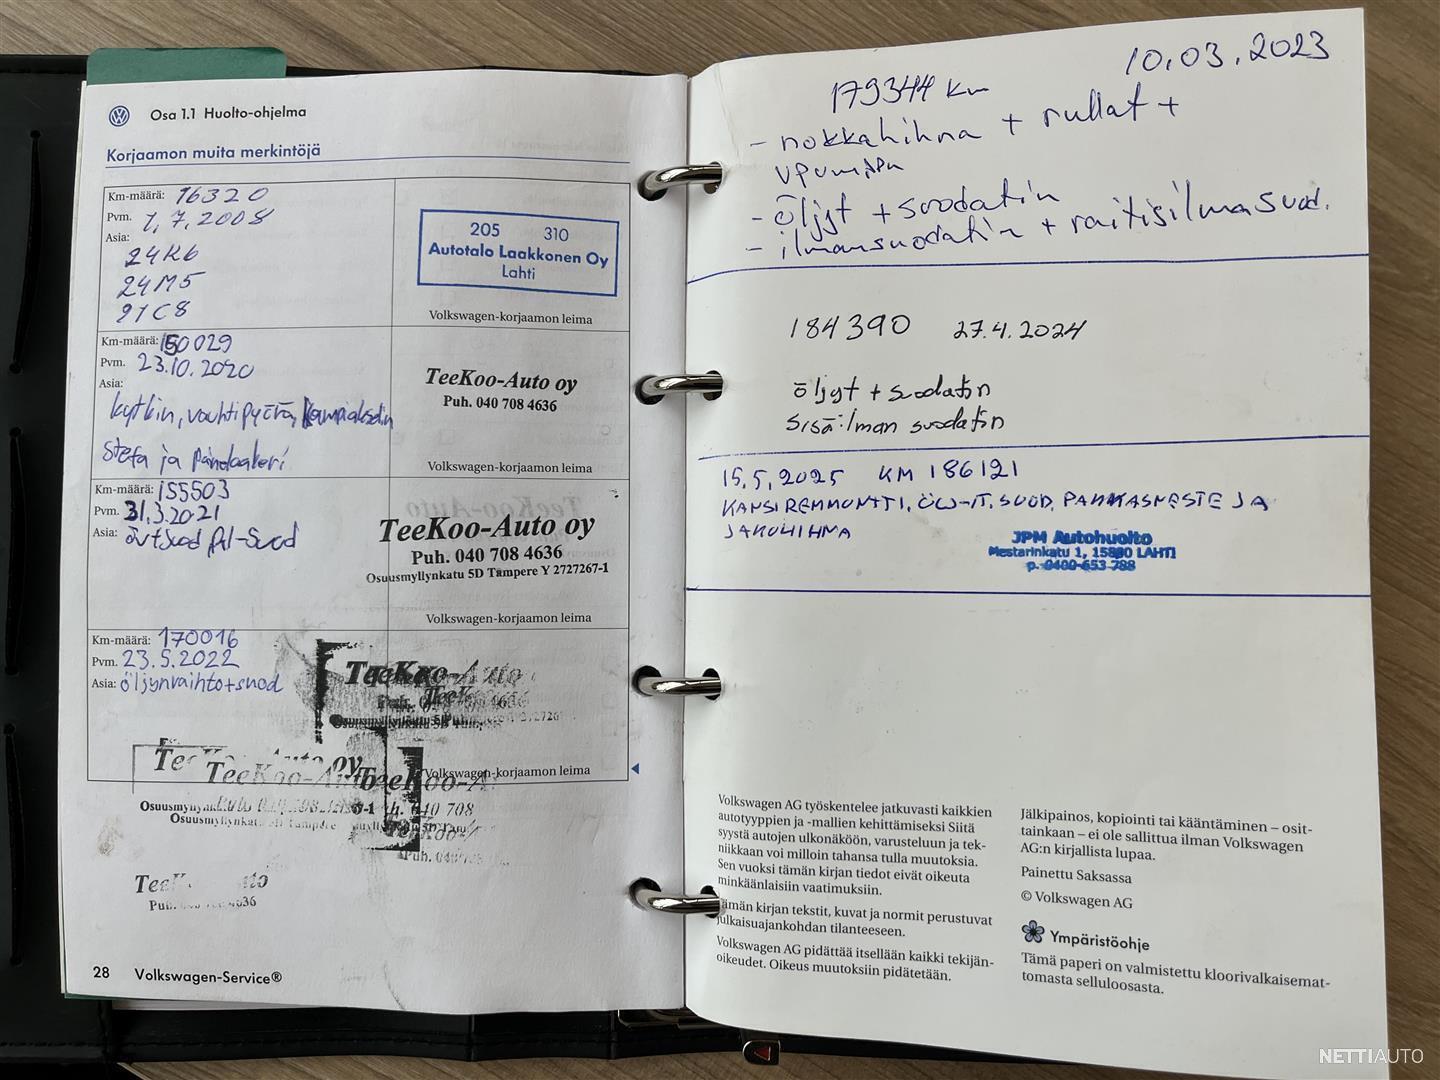 Osa 1.1 Huolto-ohjelma
Korjaamon muita merkintöjä
Km-määrä: 16320
Pvm. 1,7,2008
Asia:
24K6
24M5
21C8
205 310
Autotalo Laakkonen Oy
Lahti
Volkswagen-korjaamon leima
Km-määrä: 150029
Pvm. 23.10.2020
Asia:
kytkin, vauhtipyörä, kampiakselin
stefa ja painelaakeri
TeeKoo-Auto oy
Puh. 040 708 4636
Volkswagen-korjaamon leima
Km-määrä: 155503
Pvm. 31.3.2021
Asia:
TeeKoo-Auto oy
Puh. 040 708 4636
Osuusmyllynkatu 5D Tampere Y 2727267-1
Volkswagen-korjaamon leima
Km-määrä: 170016
Pvm. 23.5.2022
Asia: öljynvaihto+suod
TeeKoo-Auto
Volkswagen-korjaamon leima
28 Volkswagen-Service®
10.03.2023
179344 km
- nokkahihna + rullat +
vpumppu
- öljyt + suodatin
- ilmansuodatin + raitisilmasuod.
184390 27.4.2024
öljyt + suodatin
sisäilman suodatin
15.5.2025 KM 186121
KANSIREMMONTTI, ÖLJY-IT. SUOD. PAKKASNESTE JA
JAKOHIHNA
JPM Autohuolto
Mestarinkatu 1, 15800 LAHTI
p. 0400-653 788
Volkswagen AG työskentelee jatkuvasti kaikkien
autotyyppien ja -mallien kehittämiseksi Siitä
syystä autojen ulkonäköön, varusteluun ja tek-
niikkaan voi milloin tahansa tulla muutoksia.
Sen vuoksi tämän kirjan tiedot eivät oikeuta
minkäänlaisiin vaatimuksiin.
ämän kirjan tekstit, kuvat ja normit perustuvat
julkaisuajankohdan tilanteeseen.
Volkswagen AG pidättää itsellään kaikki tekijän-
oikeudet. Oikeus muutoksiin pidätetään.
Jälkipainos, kopiointi tai kääntäminen – osit-
tainkaan – ei ole sallittua ilman Volkswagen
AG:n kirjallista lupaa.
Painettu Saksassa
© Volkswagen AG
Ympäristöohje
Tämä paperi on valmistettu kloorivalkaisemat-
tomasta selluloosasta.
NETTIAUTO